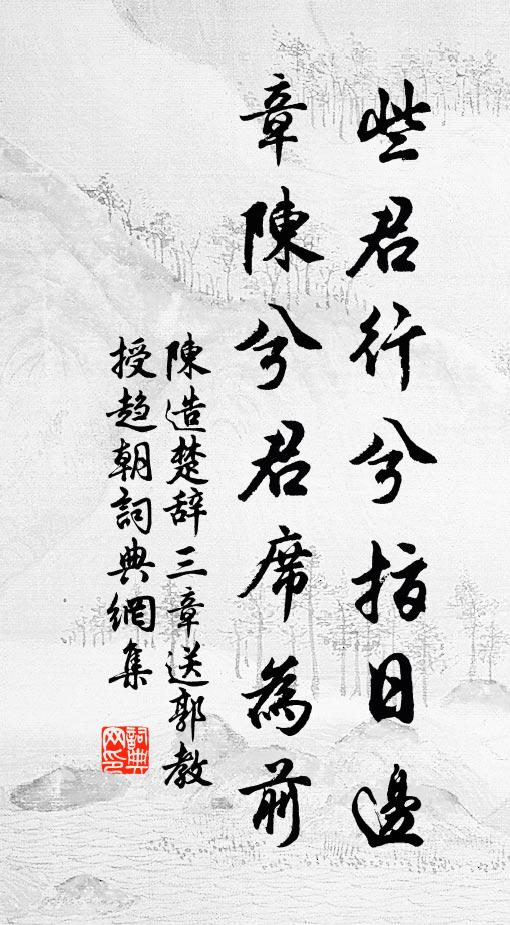 些君行兮指日邊
章陳兮君席為前
陳造楚辞三章送郭教
授趋朝詞典網集
詞典网印